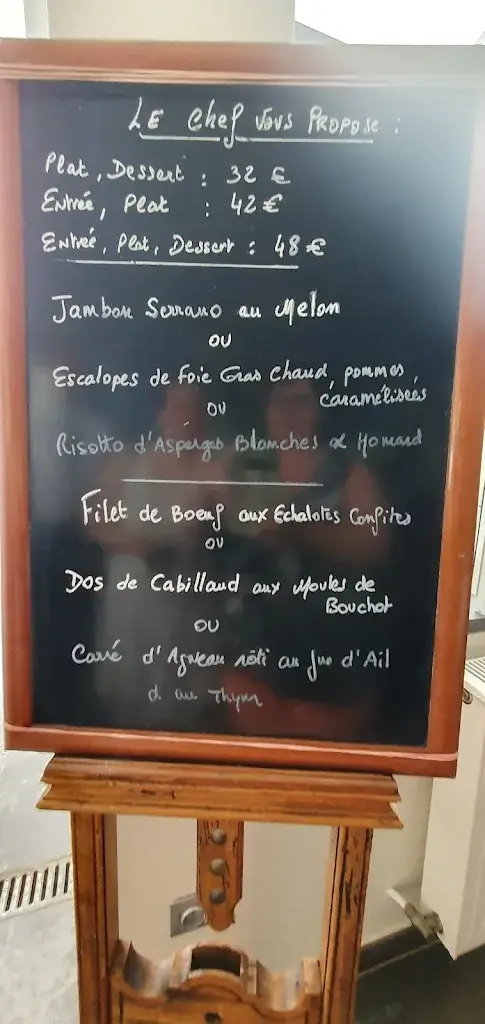 LE Chef vous PROPOSE :
Plat, Dessert : 32 €
Entrée, Plat : 42 €
Entrée, Plat, Dessert : 48 €
Jambon Serrano au Melon
OU
Escalopes de Foie Gras Chaud, pommes
caramélisées
OU
Risotto d'Asperges Blanches & Homard
Filet de Boeuf aux Echalotes Confites
OU
Dos de Cabillaud aux Moules de
Bouchot
OU
Carré d'Agneau rôti au Jus d'Ail
& au Thym